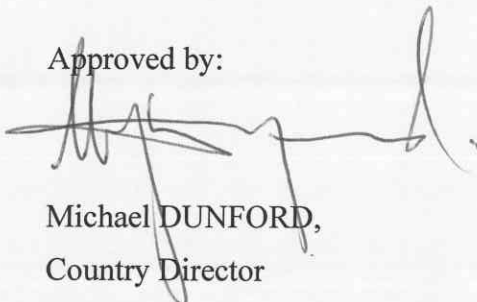 Approved by:
Michael DUNFORD,
Country Director